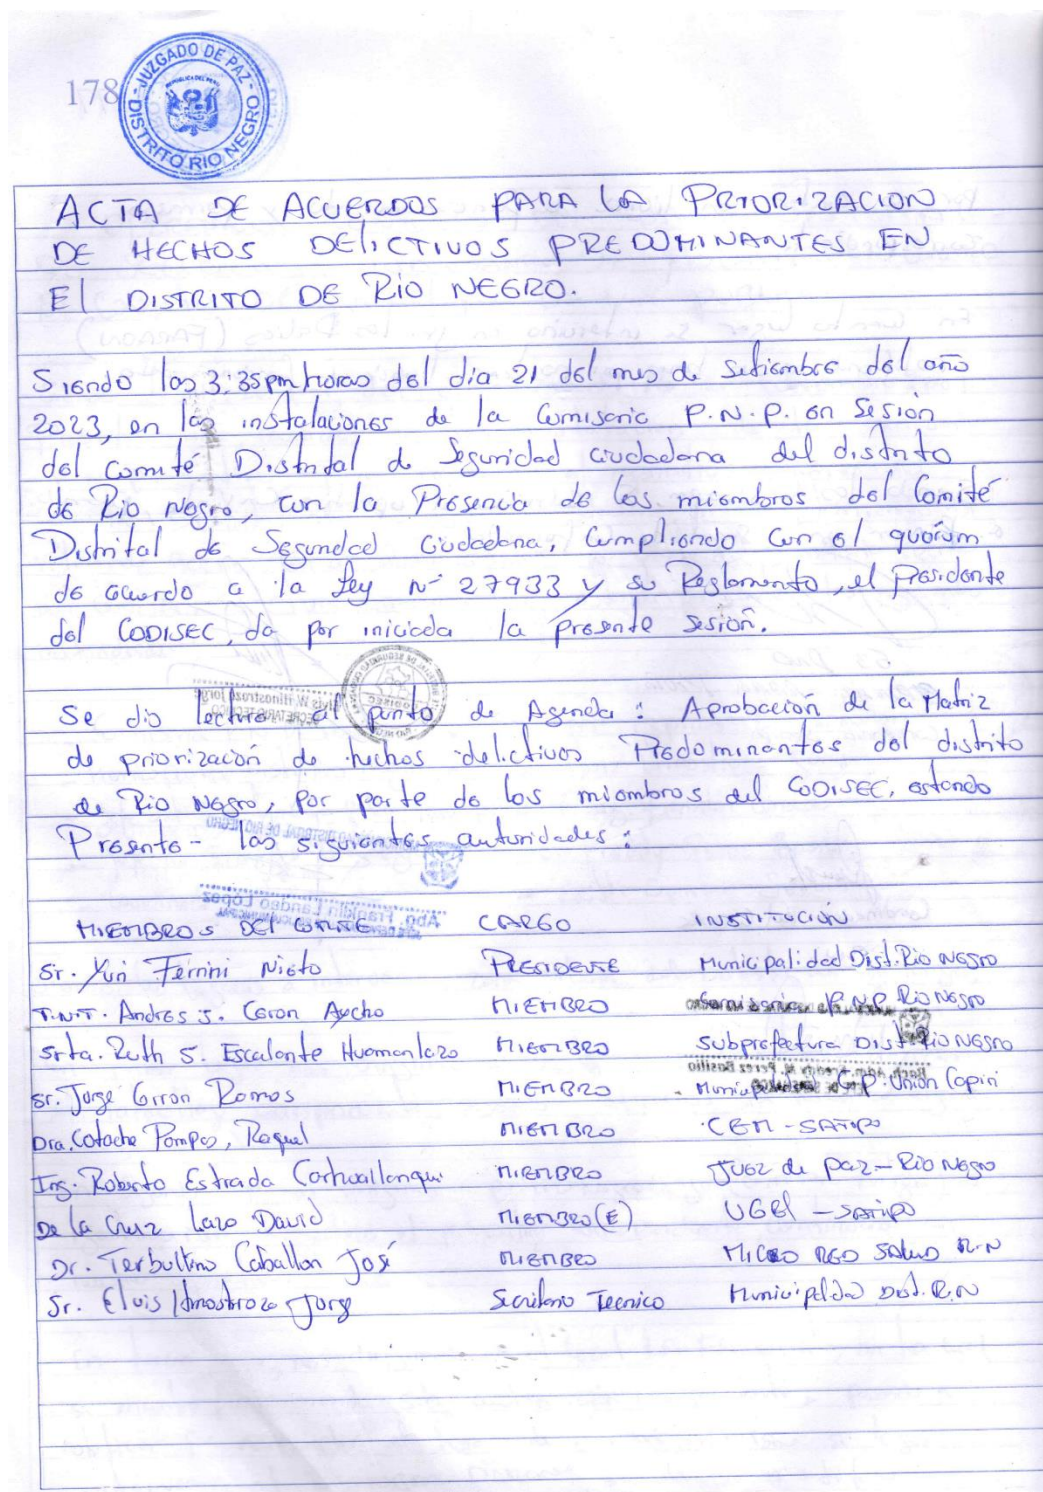 178
JUZGADO DE PAZ
REPUBLICA DEL PERU
DISTRITO RIO NEGRO
ACTA DE ACUERDOS PARA LA PRIORIZACION
DE HECHOS DELICTIVOS PREDOMINANTES EN
El DISTRITO DE RIO NEGRO.
Siendo las 3:35pm horas del dia 21 del mes de Setiembre del año
2023, en las instalaciones de la Comisaria P.N.P. en Sesión
del comité Distrital de Seguridad ciudadana del distrito
de Rio Negro, con la Presencia de los miembros del Comité
Distrital de Seguridad Ciudadana, Cumpliendo Con el quórum
de acuerdo a la Ley N° 27933 y su Reglamento, el Presidente
del CODISEC, da por iniciada la presente sesión.
Se dio lectura al punto de Agenda: Aprobación de la Matriz
de priorización de hechos delictivos Predominantes del distrito
de Rio Negro, por parte de los miembros del CODISEC, estando
Presente- las siguientes autoridades:
MIEMBROS DEL COMITE CARGO INSTITUCIÓN
Sr. Yuri Ferrini Nieto PRESIDENTE Municipalidad Dist. Rio Negro
T.N.T. Andres J. Ceron Aycho MIEMBRO Comisaria P.N.P. Rio Negro
Srta. Ruth S. Escalante Huamanlazo MIEMBRO Subprefectura Dist. Rio Negro
Sr. Jorge Ramos MIEMBRO Municipalidad C.P. Unión Capiri
Dra. Cotache Pompes, Raquel MIEMBRO CEM - SATIPO
Ing. Roberto Estrada Carhuallanqui MIEMBRO Juez de paz - Rio Negro
De la Cruz Lazo David MIEMBRO (E) UGEl - SATIPO
Dr. Caballon José MIEMBRO MICRO RED SALUD R.N
Sr. Elvis Hinostroza Jorge Secretario Tecnico Municipalidad Dist. R.N